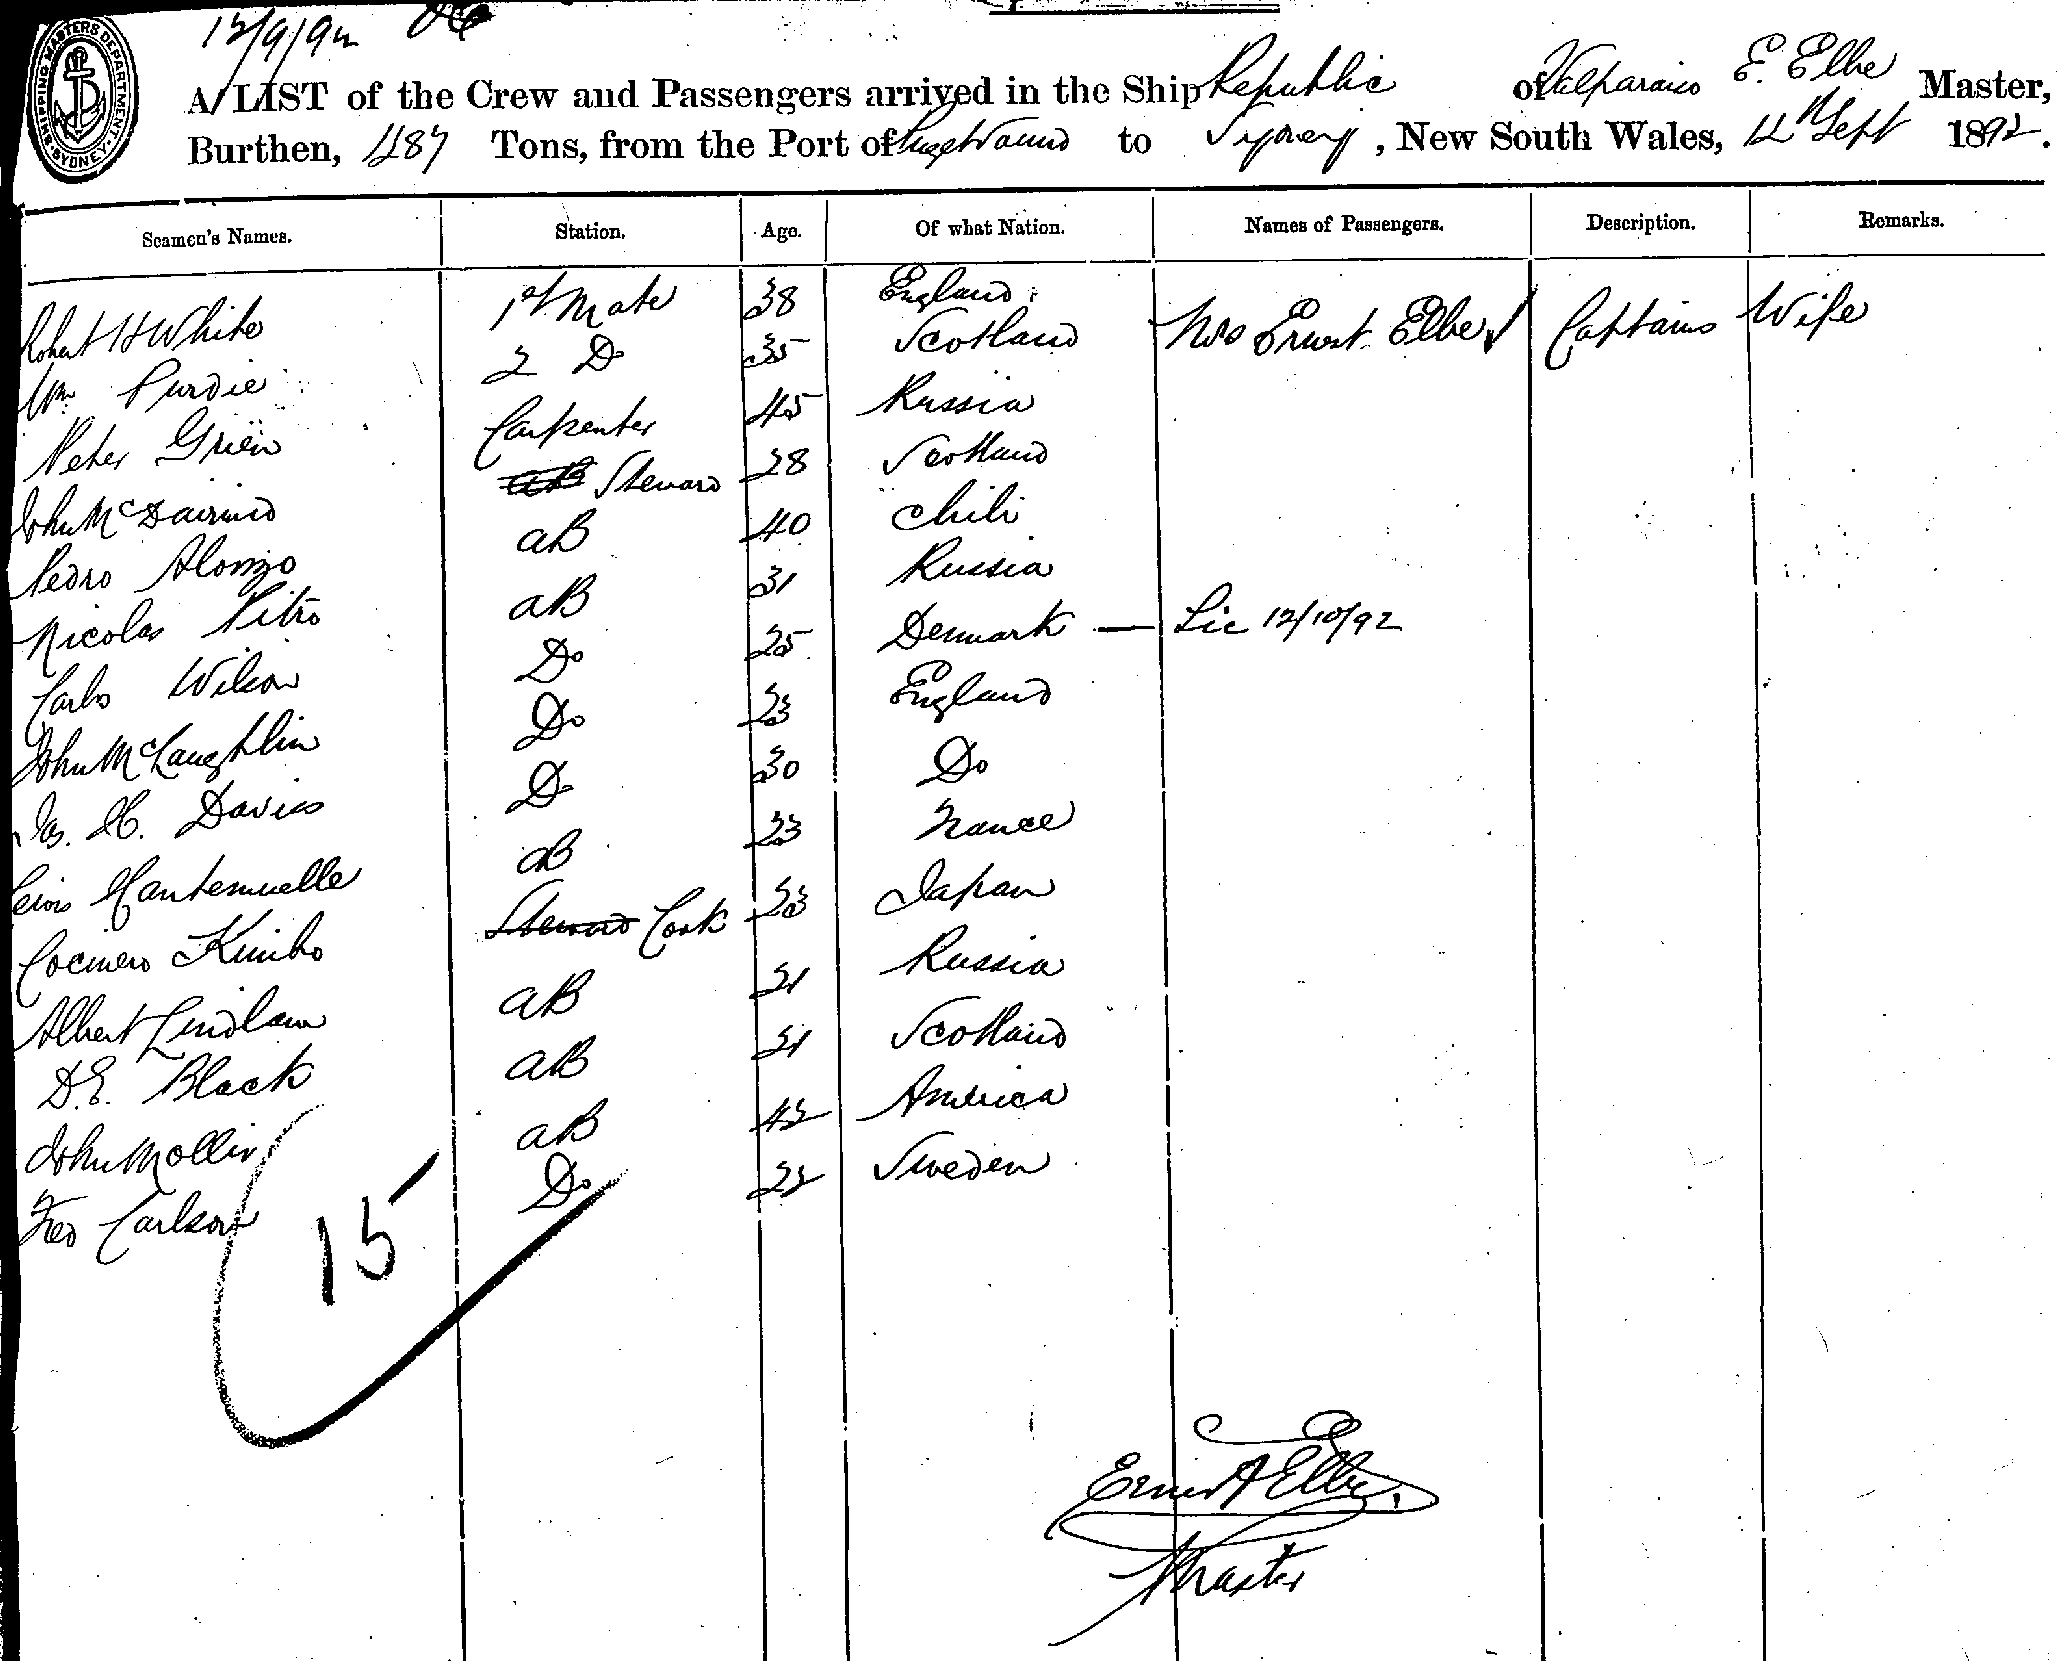 12/9/92
SHIPPING MASTERS DEPARTMENT SYDNEY
A LIST of the Crew and Passengers arrived in the Ship Republic of Valparaiso E. Elbe Master,
Burthen, 1287 Tons, from the Port of Puget Sound to Sydney, New South Wales, 12th Sept 1892.
Seamen's Names. Station. Age. Of what Nation. Names of Passengers. Description. Remarks.
Robert H White 1st Mate 38 England Mrs Ernest Elbe Captains Wife
Wm Purdie 2 Do 35 Scotland
Peter Grien Carpenter 45 Russia
John McDairmid Steward 28 Scotland
Pedro Alonzo aB 40 Chili
Nicolas Pitro aB 31 Russia
Carlos Wilson Do 25 Denmark — Lic 12/10/92
John McLaughlin Do 23 England
Jas. H. Davies Do 30 Do
Hantemuelle aB 23 France
Cocinero Kimbo Steward Cook 23 Japan
Albert Lindlam aB 21 Russia
D.E. Black aB 21 Scotland
John Mollin aB 42 America
Fred Carlson Do 22 Sweden
15
Ernest A Elbe,
Master